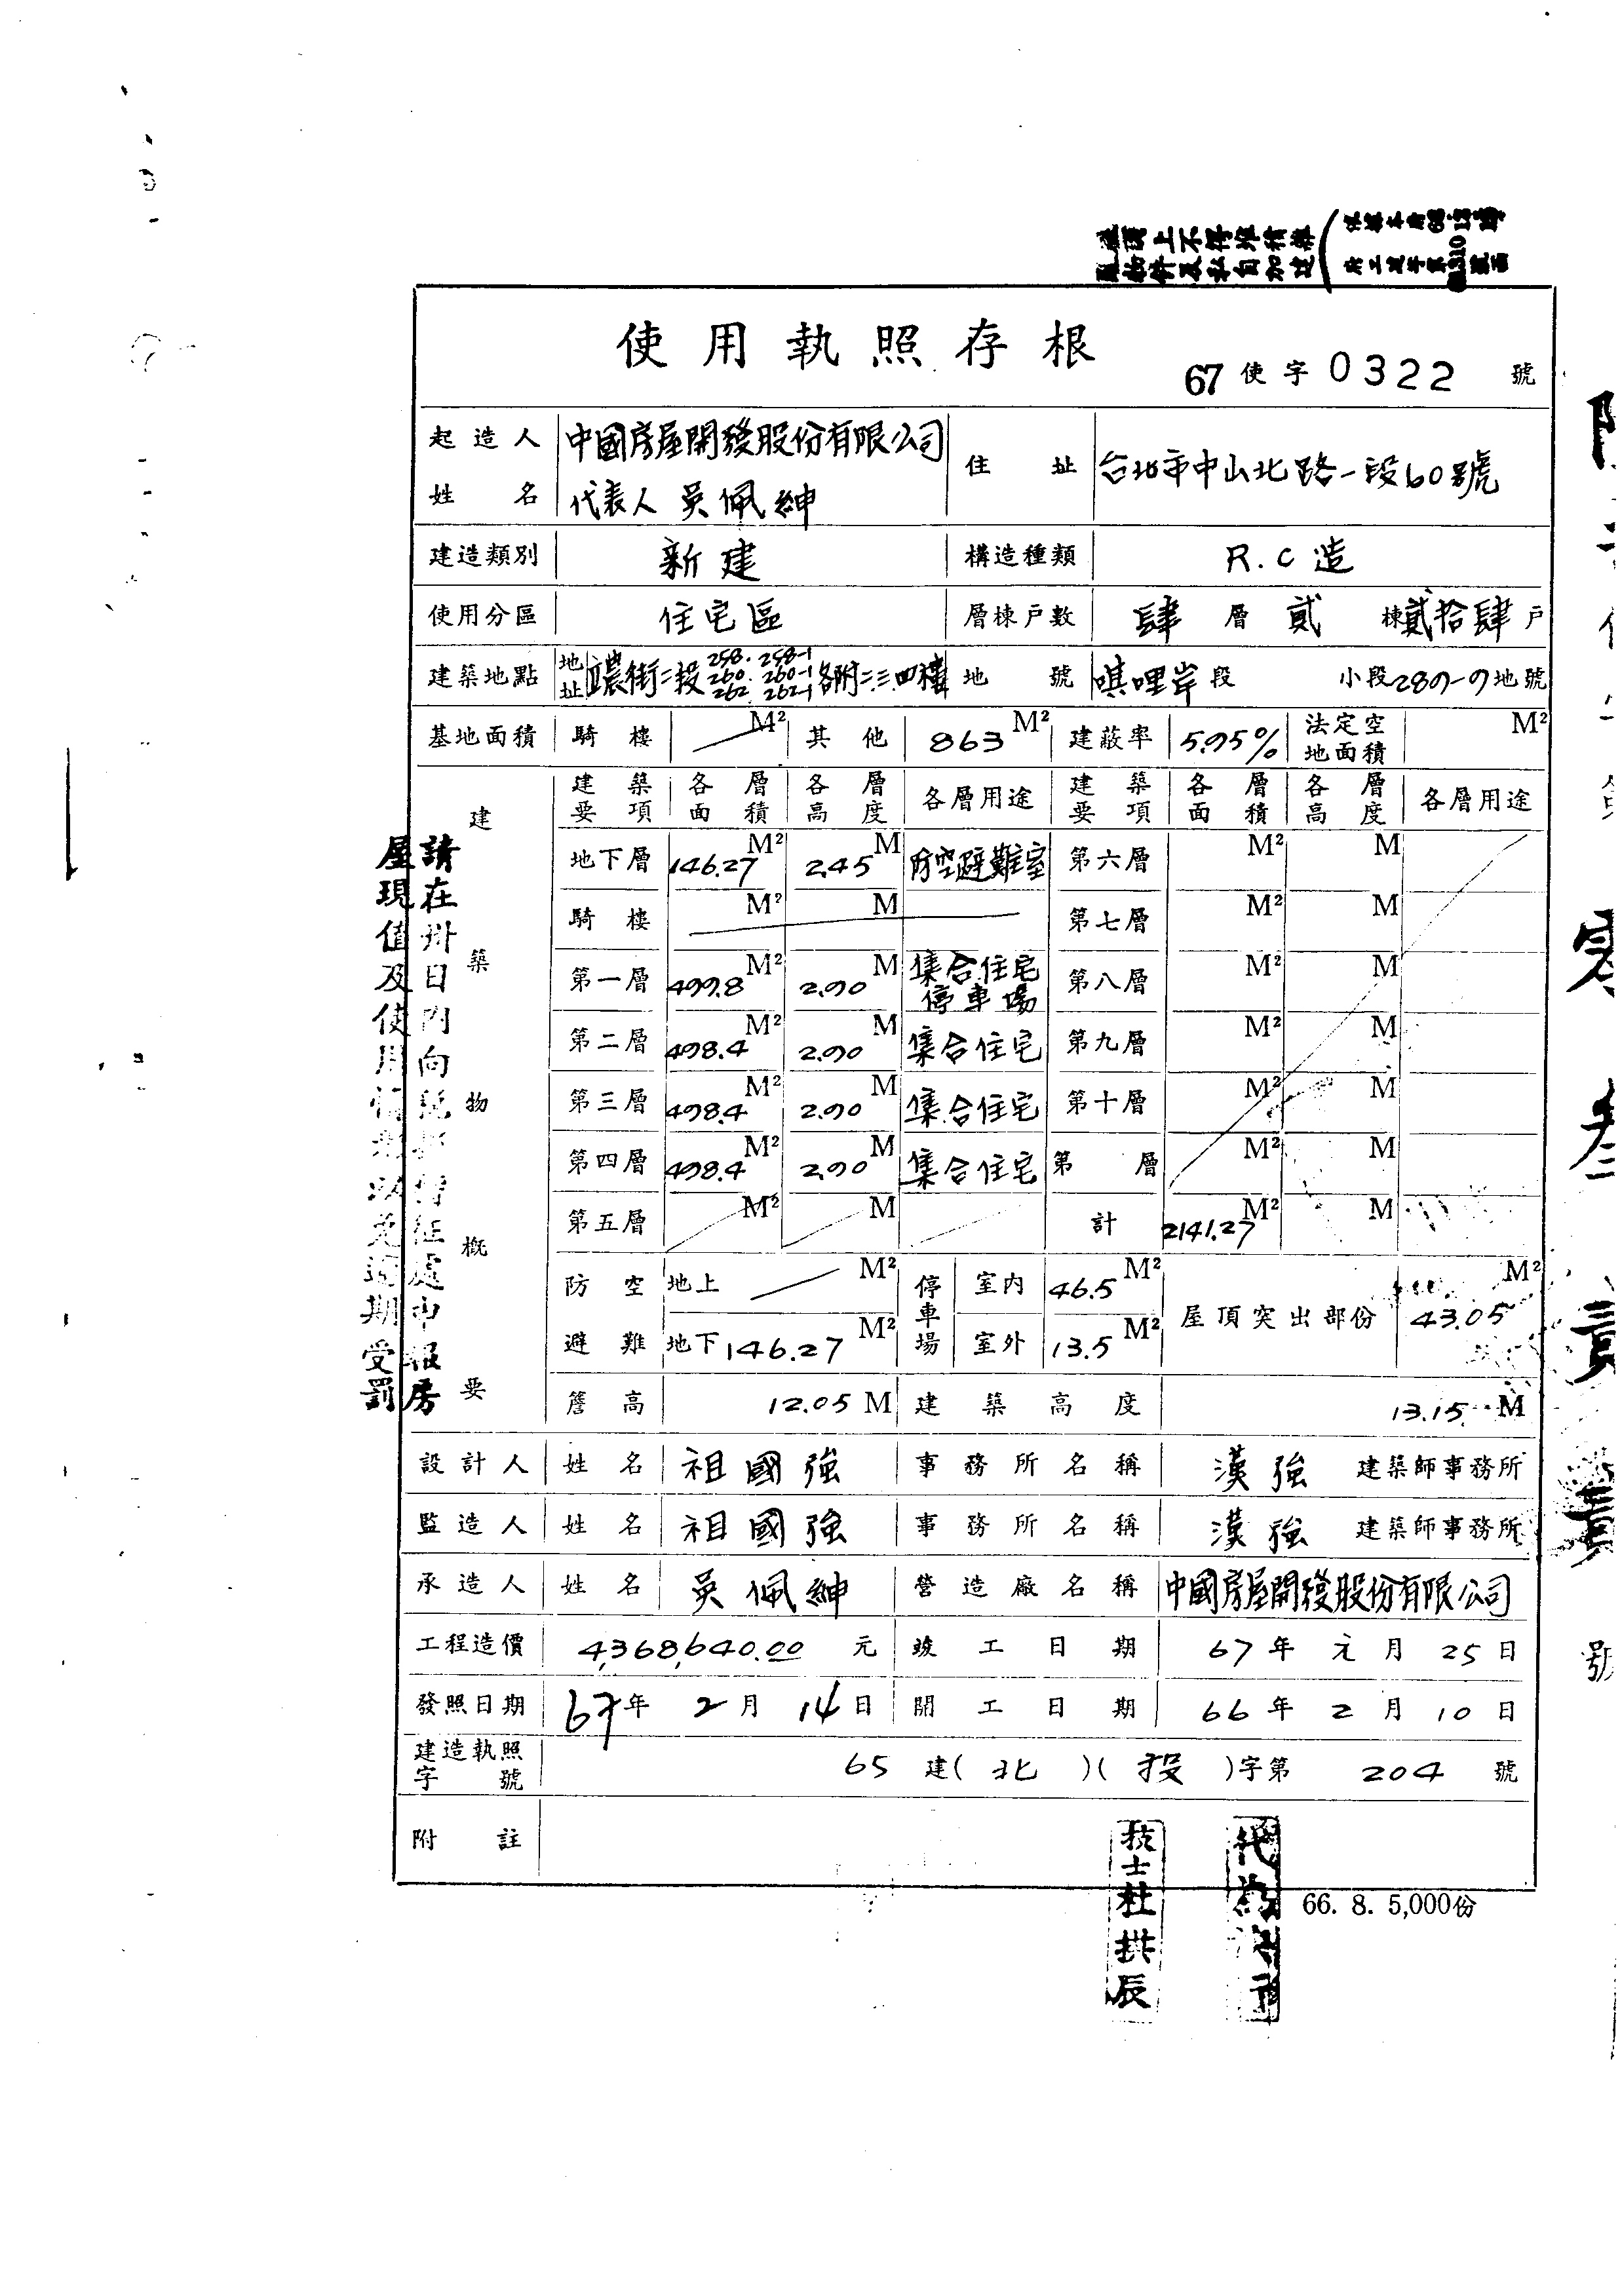 使用執照存根
67 使字 0322 號
起造人姓名 中國房屋開發股份有限公司 代表人 吳佩紳 住址 台北市中山北路一段60號
建造類別 新建 構造種類 R.C造
使用分區 住宅區 層棟戶數 肆層貳棟貳拾肆戶
建築地點 地址 農街二段 258. 258-1 260. 260-1 262 262-1 各附二.三.四樓 地號 唭哩岸段 小段 地號
基地面積 騎樓 M² 其他 863 M² 建蔽率 法定空地面積 M²
建築物概要
建築要項 各層面積 各層高度 各層用途 建築要項 各層面積 各層高度 各層用途
地下層 146.27 M² 2.45 M 防空避難室 第六層 M² M
騎樓 M² M 第七層 M² M
第一層 M² M 集合住宅 停車場 第八層 M² M
第二層 498.4 M² 2.90 M 集合住宅 第九層 M² M
第三層 498.4 M² 2.90 M 集合住宅 第十層 M² M
第四層 498.4 M² 2.90 M 集合住宅 第 層 M² M
第五層 M² M 計 2141.27 M² M
防空避難 地上 M² 停車場 室內 46.5 M² 屋頂突出部份 43.05 M²
地下 146.27 M² 室外 13.5 M²
簷高 12.05 M 建築高度 13.15 M
設計人 姓名 祖國強 事務所名稱 漢強 建築師事務所
監造人 姓名 祖國強 事務所名稱 漢強 建築師事務所
承造人 姓名 吳佩紳 營造廠名稱 中國房屋開發股份有限公司
工程造價 4,368,640.00 元 竣工日期 67年元月25日
發照日期 67年2月14日 開工日期 66年2月10日
建造執照字號 65 建(北)(投)字第 204 號
附註
技士杜拱辰
66. 8. 5,000份
請在卅日內向 處申報房
屋現值及使用 期受罰
號